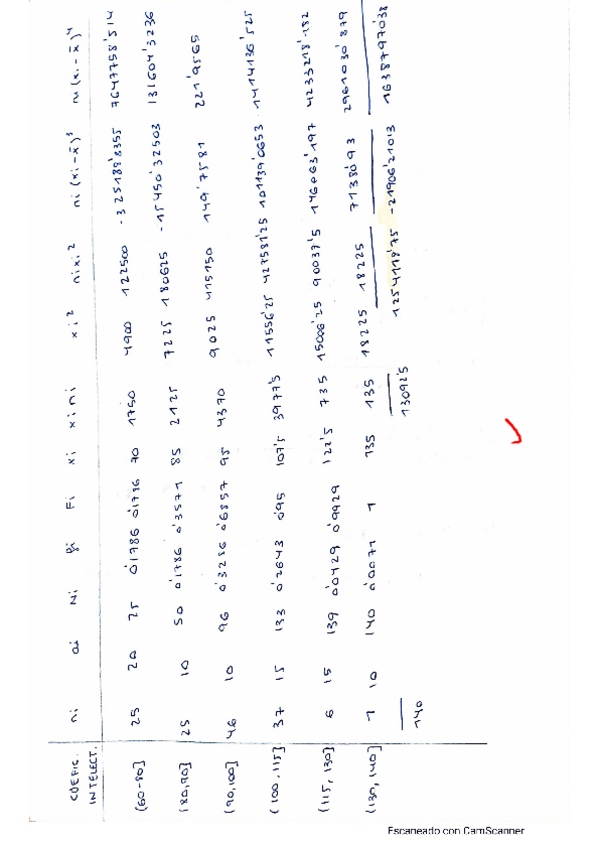 COEFIC. INTELECT. ni ai Ni fi Fi xi xini xi² nixi² ni(xi-x̄)³ ni(xi-x̄)⁴
(60-80] 25 20 25 0'1786 0'1786 70 1750 4900 122500 -325188'8355 7647758'514
(80,90] 25 10 50 0'1786 0'3571 85 2125 7225 180625 -15450'32503 131604'3236
(90,100] 46 10 96 0'3286 0'6857 95 4370 9025 415150 149'7581 221'9565
(100,115] 37 15 133 0'2643 0'95 107'5 3977'5 11556'25 427581'25 101139'0653 1414136'525
(115,130] 6 15 139 0'0429 0'9929 122'5 735 15006'25 90037'5 146063'197 4233218'182
(130,140] 1 10 140 0'0071 1 135 135 18225 18225 71380'93 2961030'879
140 13092'5 1254118'75 -21906'21013 16387970'38
Escaneado con CamScanner